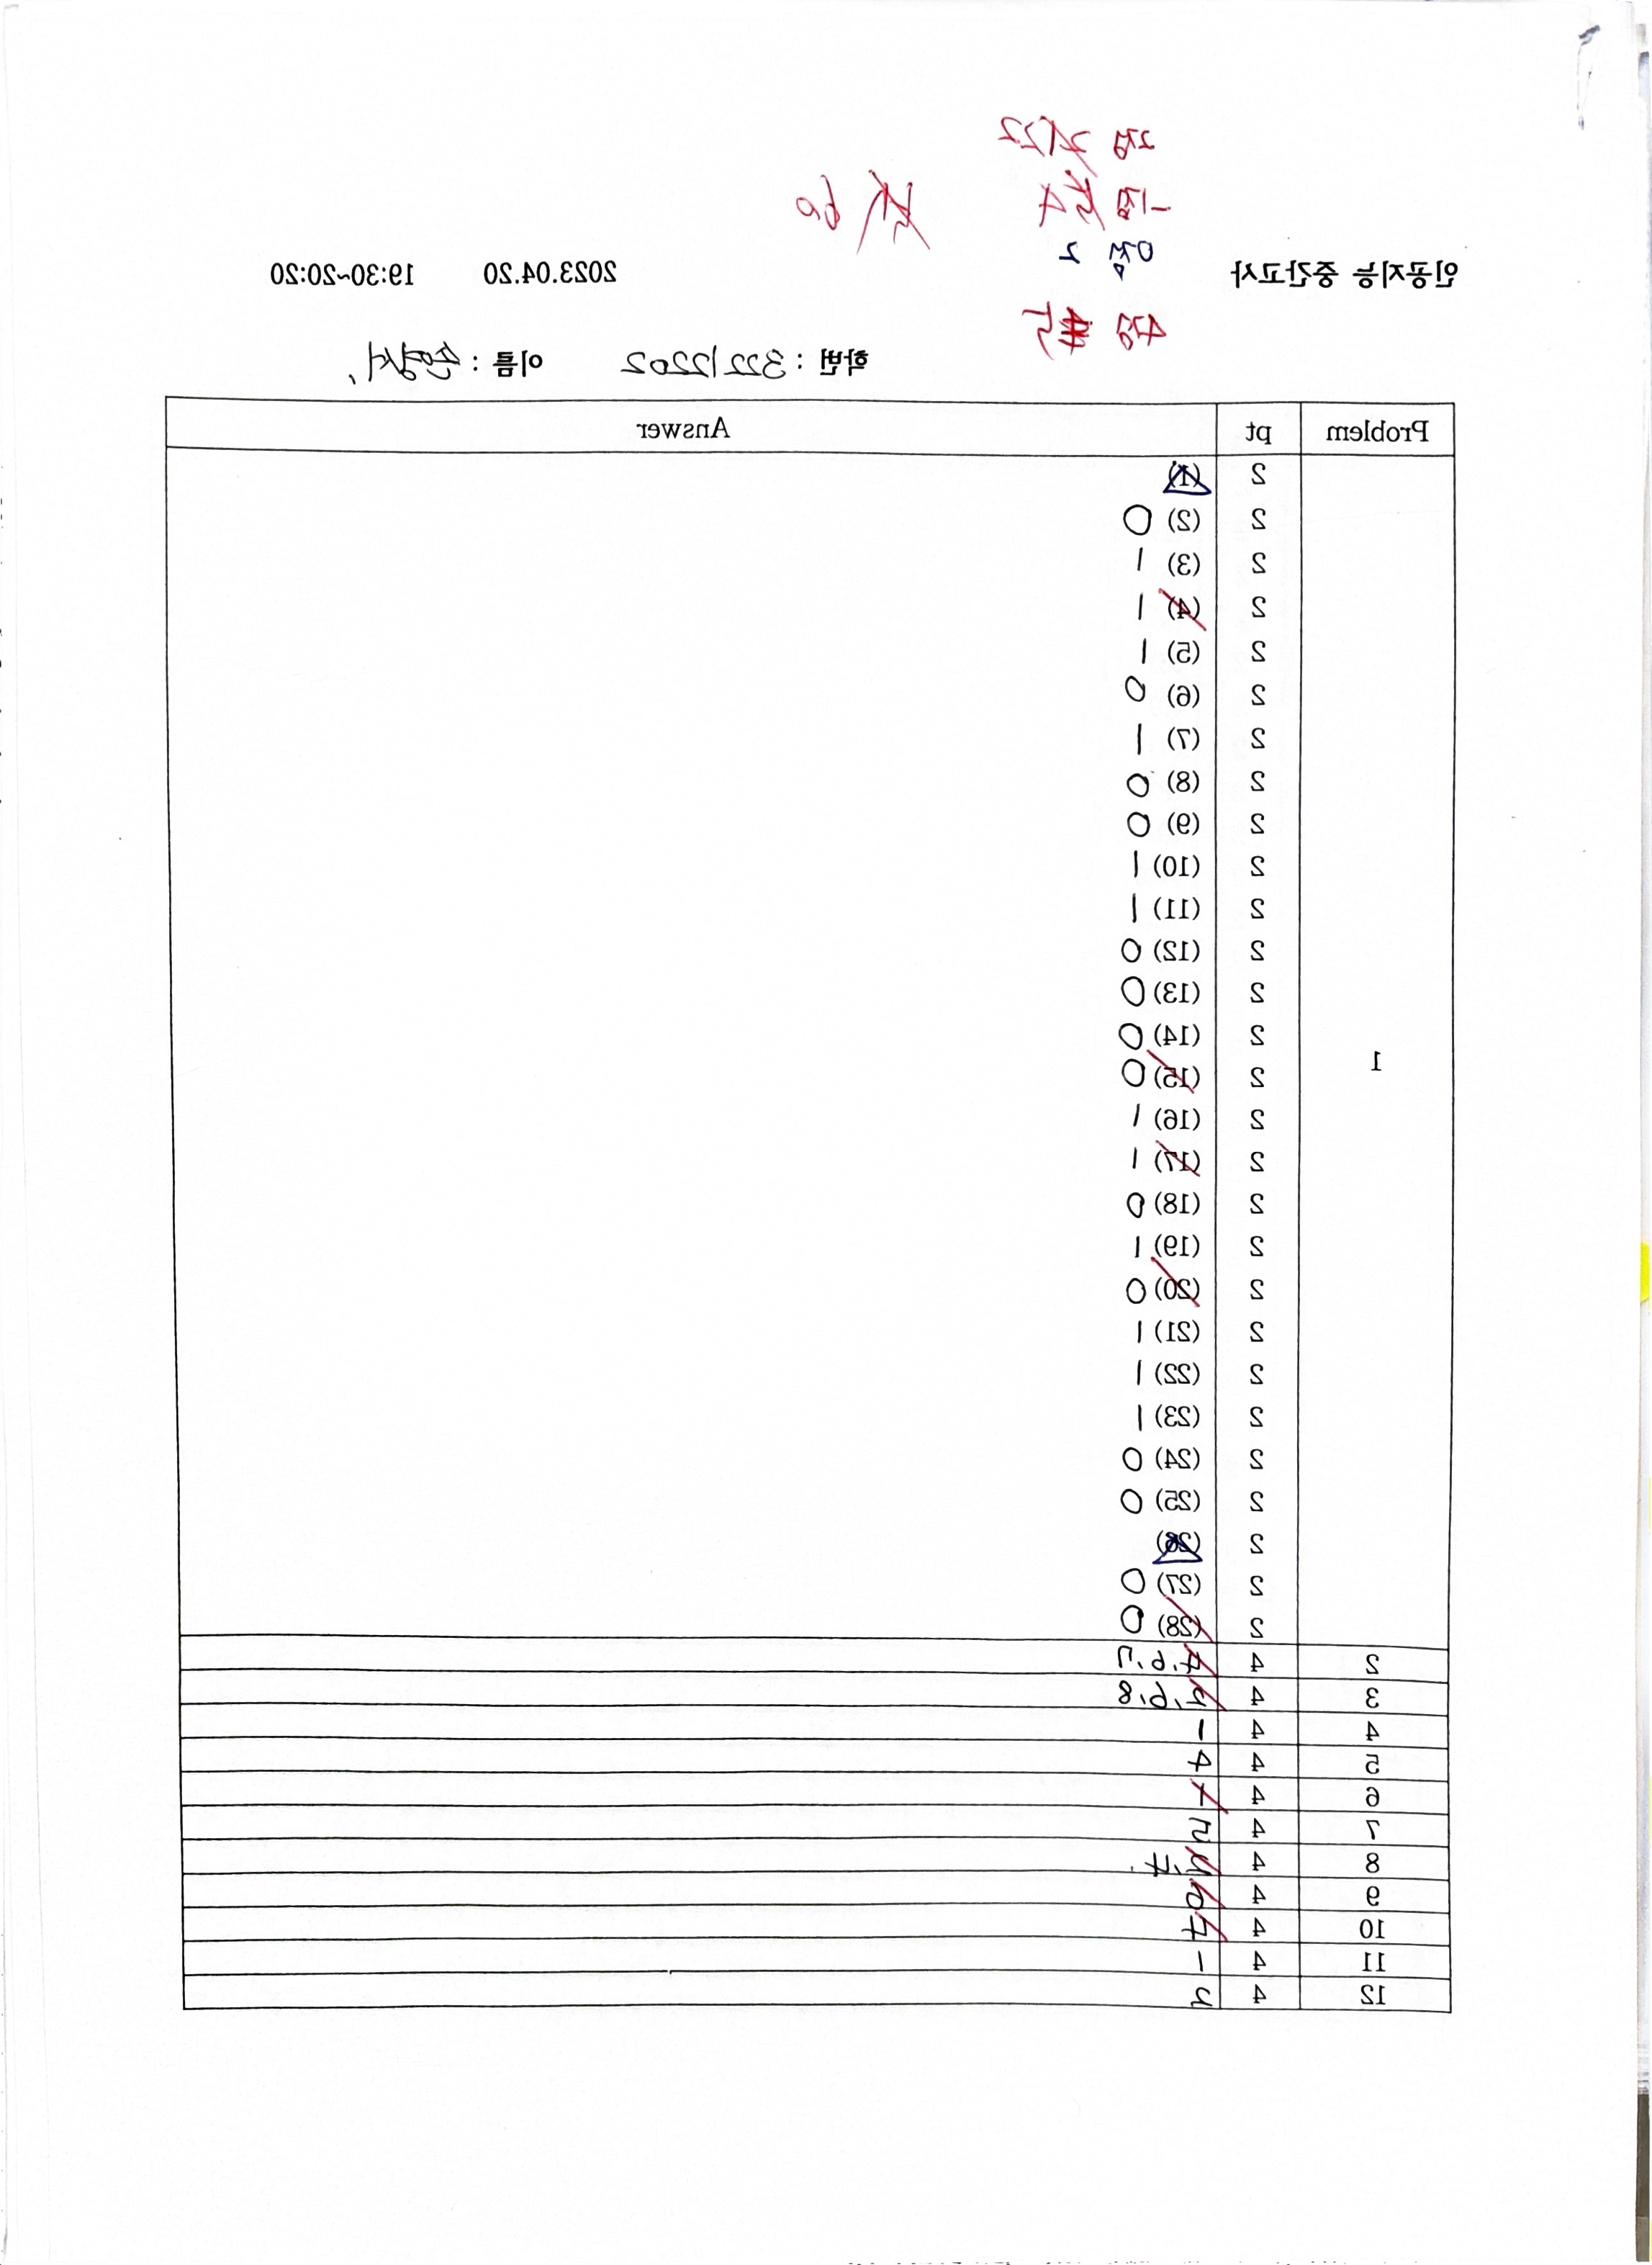 2점 22
-1점 4
0점 2
60
인공지능 중간고사 2023.04.20 19:30~20:20
4점 5
학번 : 32212202 이름 : 손영서
Problem pt Answer
1
2 (1)
2 (2) 0
2 (3) 1
2 (4) 1
2 (5) 1
2 (6) 0
2 (7) 1
2 (8) 0
2 (9) 0
2 (10) 1
2 (11) 1
2 (12) 0
2 (13) 0
2 (14) 0
2 (15) 0
2 (16) 1
2 (17) 1
2 (18) 0
2 (19) 1
2 (20) 0
2 (21) 1
2 (22) 1
2 (23) 1
2 (24) 0
2 (25) 0
2 (26)
2 (27) 0
2 (28) 0
2 4 4.6.7
3 4 2.6.8
4 4 1
5 4 4
6 4
7 4 2
8 4
9 4 6
10 4 7
11 4 1
12 4 2